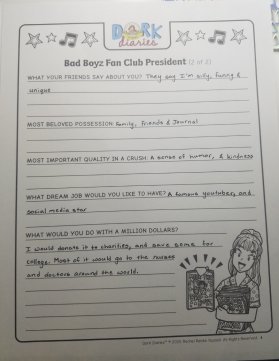 DORK
diaries
Bad Boyz Fan Club President (2 of 2)
WHAT YOUR FRIENDS SAY ABOUT YOU? They say I'm silly, funny &
unique
MOST BELOVED POSSESSION Family, Friends & Journal
MOST IMPORTANT QUALITY IN A CRUSH A sense of humor, & kindness
WHAT DREAM JOB WOULD YOU LIKE TO HAVE? A famous youtuber, and
social media star
WHAT WOULD YOU DO WITH A MILLION DOLLARS?
I would donate it to charities, and save some for
college. Most of it would go to the nurses
and doctors around the world.
DORK Diaries © 2020, Rachel Renée Russell. All Rights Reserved.